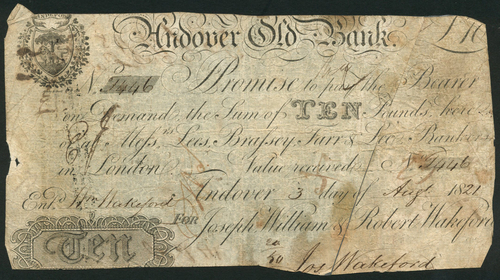 Andover Old Bank.
£10
No. 2446 I Promise to pay the Bearer
on Demand the Sum of TEN Pounds, here
or at Messrs Lees, Brassey, Farr & Bankers
in London. Value received No. 2446
Andover 3 day of Augt 1821
Entd Wm Wakeford
FOR Joseph William & Robert Wakeford
Ten
Jos Wakeford